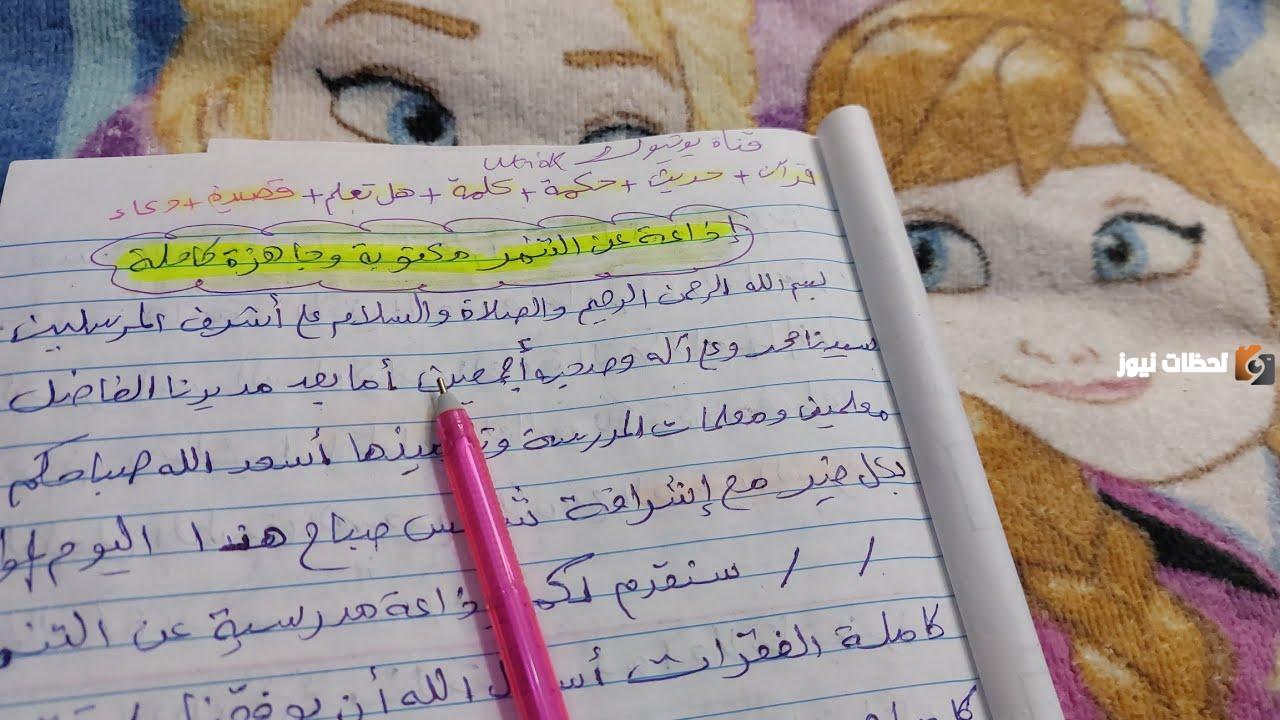 قناة يوتيوب
قرآن + حديث + حكمة + كلمة + هل تعلم + قصيدة + دعاء
إذاعة عن التنمر مكتوبة وجاهزة كاملة
بسم الله الرحمن الرحيم والصلاة والسلام على أشرف المرسلين
سيدنا محمد وع آله وصحبه أجمعين أما بعد مديرنا الفاضل
معلمين ومعلمات المدرسة أسعد الله صباحكم
بكل خير مع إشراقة صباح هذا اليوم
/ / سنقدم لكم مدرسية عن
كاملة الفقرات الله أن
لحظات نيوز